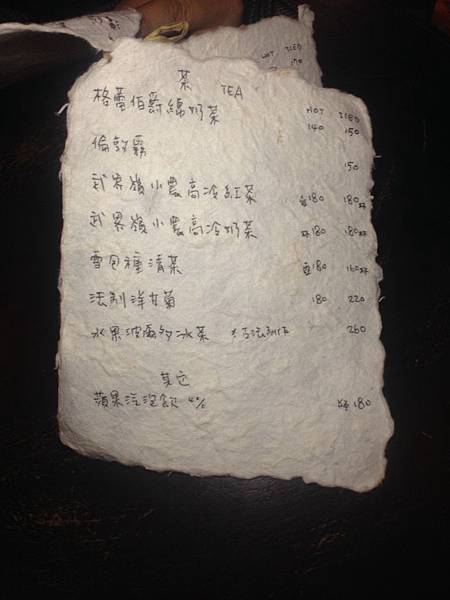 HOT ICED
170
茶 TEA
HOT ICED
格蕾伯爵綿奶茶 140 150
倫敦霧 150
武界嶺小農高冷紅茶 壺180 180杯
武界嶺小農高冷奶茶 杯180 180杯
雪包種清茶 壺180 160杯
法別洋甘菊 180 220
水果波麗多冰茶 260
其它
蘋果汽泡飲 4% 180